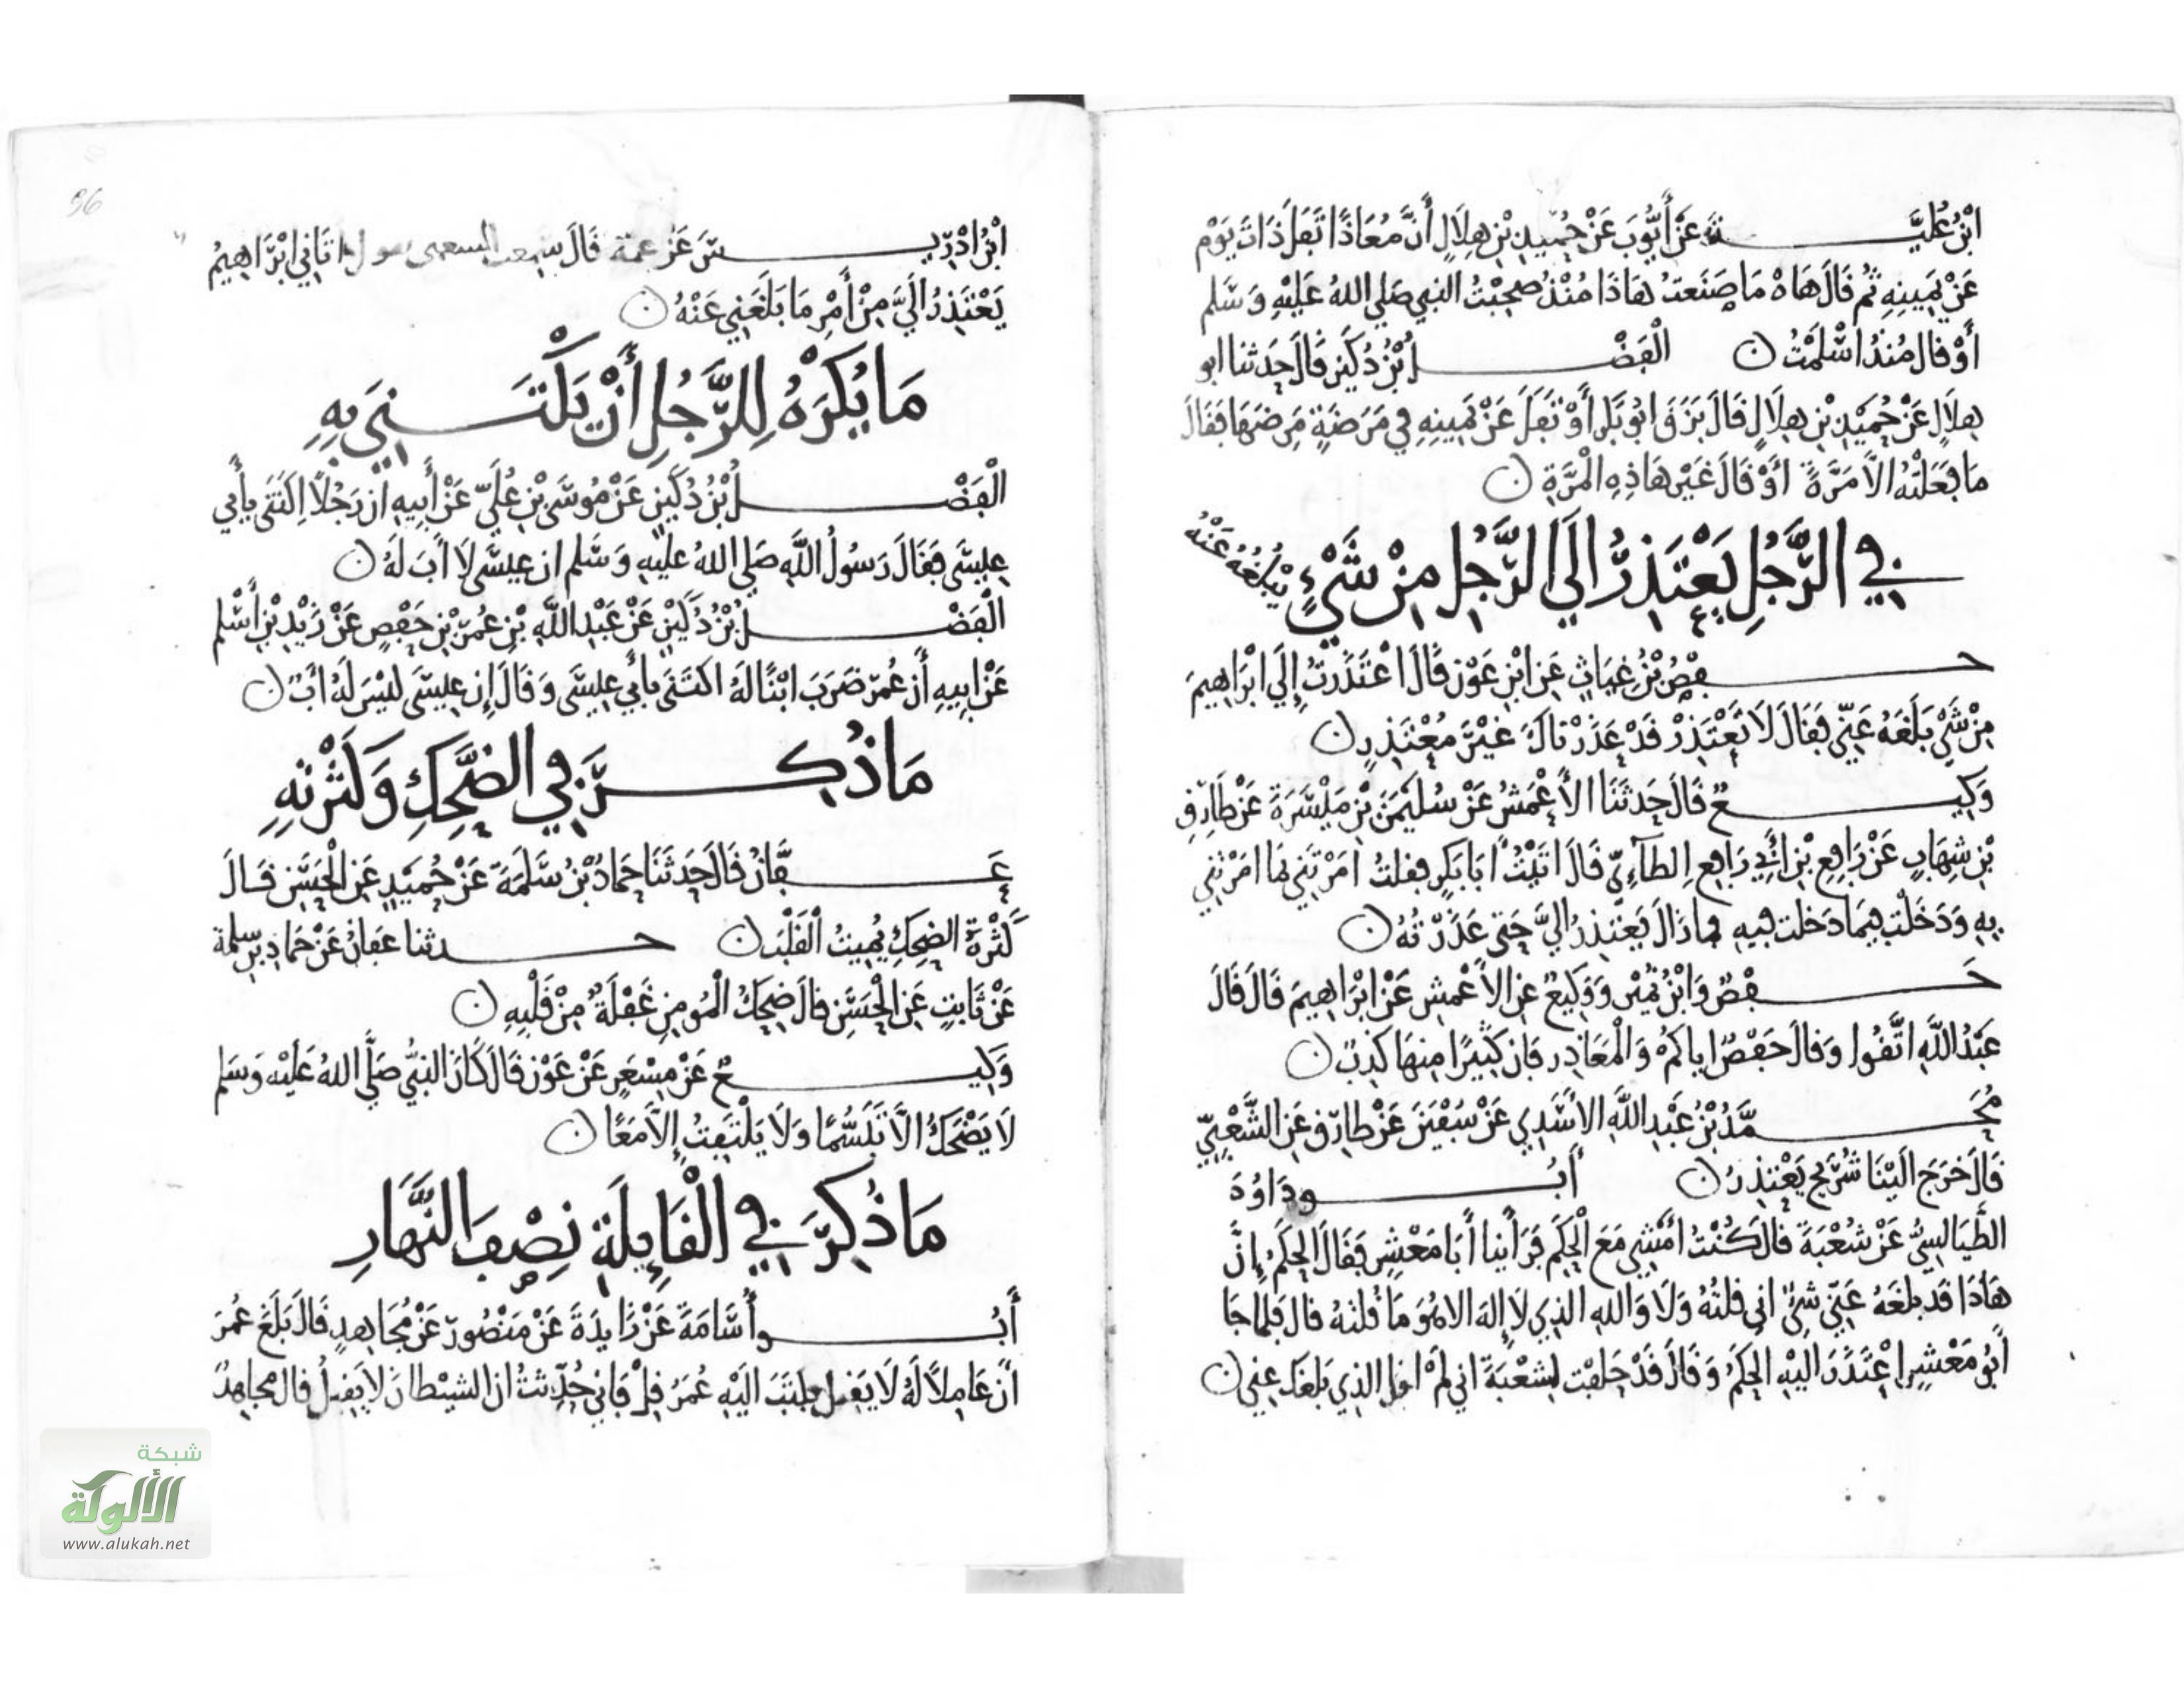 ابْنُ عُلَيَّةَ عَنْ أَيُّوبَ عَنْ حُمَيْدِ بْنِ هِلَالٍ أَنَّ مُعَاذًا تَفَلَ ذَاتَ يَوْمٍ
عَنْ يَمِينِهِ ثُمَّ قَالَ هَاهْ مَا صَنَعتُ هَاذَا مُنْذُ صَحِبْتُ النبي صَلى اللهُ عَلَيْهِ وَسَّلم
أَوْ قال مُنذُ اسْلَمْتُ الْفَضْلُ بْنُ دُكَيْنٍ قَالَ حَدثنا ابو
هِلَالٍ عَنْ حُمَيْدِ بْنِ هِلَالٍ قَالَ بَزَقَ ابُو بَكْرٍ أَوْ تَفَلَ عَنْ يَمِينِهِ فِي مَرْضَةٍ مَرِضَهَا فَقَالَ
مَا فَعَلْتُهُ الَّا مَرَّةً أَوْ قَالَ غَيْرَ هَاذِهِ الْمَرَّةِ
فِي الرَّجُلِ يَعْتَذِرُ إلَى الرَّجُلِ مِنْ شَّيْءٍ يَبْلُغُهُ عَنْهُ
حَفْصُ بْنُ غِيَاثٍ عَنِ ابْنِ عَوْنٍ قَالَ اعْتَذَرْتُ إلَي ابْرَاهِيمَ
مِنْ شَيْءٍ بَلَغَهُ عَنِّي فَقَالَ لَا تَعْتَذِرْ قَدْ عَذَرْنَاكَ غَيْرَ مُعْتَذِرٍ
وَكِيعٌ قَالَ حَدَثَنَا الأَعْمَشُ عَنْ سُلَيْمَنَ بْنِ مَيْسَرَةَ عَنْ طَارِقِ
بْنِ شِهَابٍ عَنْ رَافِعِ بْنِ أَبِي رَافِعٍ الطآئِيِّ قَالَ اتَيْتُ أَبَا بَكْرٍ فقلتُ امَرْتَنِي بما امَرْتَنِي
بِهِ وَدَخَلْتَ فِيمَا دَخَلت فِيهِ فما زَالَ يَعْتَذِرُ اليَّ حَتى عَذَرْتُهُ
حَفْصٌ وَابْنُ نُمَيْرٍ وَوَكِيعٌ عَنِ الأَعْمَشِ عَنْ ابْرَاهِيمَ قَالَ قَالَ
عَبْدُ اللَّهِ اتَّقُوا وَقالَ حَفْصٌ اياكمْ وَالْمَعَاذِر فَإن كَثِيرًا مِنهَا كَذِبٌ
مُحَمَّدُ بْنُ عَبْدِ اللَّهِ الأَسَدِي عَنْ سُفْيَنَ عَنْ طَارِقٍ عَنِ الشَّعْبِيِّ
قَالَ خَرَجَ الَيْنَا شُرَيح يَعْتَذِرُ أَبُو دَاوُدَ
الطَّيَالِسِيُّ عَنْ شُعْبَةَ قالَ كُنْتُ أَمْشِي مَعَ الْحَكَمِ فَرَأَينا أَبَا مَعْشِرٍ فَقَالَ الْحَكَمُ إِنَّ
هَاذَا قَد بلَغَهُ عَنِّي شَيْءٌ انى قلتُهُ وَلَا وَاللهِ الذِي لَا إلهَ الا هُوَ مَا قُلتهُ قال فَلما جَا
أَبُو مَعْشِرٍ اعْتَذَرَ اليْهِ الحكَمُ وَقَالَ قَدْ حَلَفْت لِشعْبَةَ اني لَمْ اقل الذِي بَلغَكَ عني
96
ابْنُ ادْرِيسَ عَنْ عَمّهِ قَالَ سَمعت الشعبي يقول اتَانِي ابْرَاهِيمُ
يَعْتَذِرُ الَيَّ مِنْ أَمْرٍ مَا بَلَغَنِي عَنْهُ
مَا يُكْرَهُ لِلرَّجُلِ أَنْ يَكْتَنِيَ بِهِ
الْفَضْلُ بْنُ دُكَيْنٍ عَنْ مُوسَى بْنِ عُلَيٍّ عَنْ أَبِيهِ ان رَجُلًا اكْتَنَى بِأَبِي
عِيسَى فَقَالَ رَسُولُ اللَّهِ صَلي اللهُ عَليهِ وَسَّلم إن عِيسَى لَا أَبَ لَهُ
الْفَضْلُ بْنُ دُكَيْنٍ عَنْ عَبْدِ اللَّهِ بْنِ عُمَرَ بْنِ حَفْصٍ عَنْ زَيْدِ بْنِ أَسْلم
عَنْ ابِيهِ أَن عُمَرَ ضَرَبَ ابْنًا لَهُ اكْتَنَى بأَبِي عِيسَى وَقَالَ إن عِيسَى لَيْسَ لَهُ أَبٌ
مَا ذُكِرَ فِي الضَّحِكِ وَكَثْرَتِهِ
عَفَّانُ قَالَ حَدَثَنَا حَمَادُ بْنُ سَّلَمَةَ عَنْ حُمَيْدٍ عَنِ الْحَسَنِ قَالَ
كَثْرَةُ الضحِكِ يُمِيتُ الْقَلْبَ حدثنا عَفانُ عَنْ حَمادِ بن سلمة
عَنْ ثَابِتٍ عَنِ الْحَسَنِ قَالَ ضَحِكُ الْمُومِنِ غَفْلَةٌ مِنْ قَلْبِهِ
وَكِيعٌ عَنْ مِسْعَرٍ عَنْ عَوْنٍ قَالَ كَانَ النبيُّ صَلَّى اللهُ عَلَيْهِ وَسَلم
لَا يَضْحَكُ الَّا تَبَسُّمًا وَلَا يَلْتَفِتُ إلَّا مَعًا
مَا ذُكِرَ فِي الْقَايِلَةِ نِصْفَ النَّهَارِ
أَبُو أُسَامَةَ عَنْ زَايِدَةَ عَنْ مَنْصُورٍ عَنْ مُجَاهِدٍ قَالَ بَلَغَ عُمَرَ
أَنَّ عَامِلًا لَهُ لَا يَقِيلُ فكتبَ الَيْهِ عُمَرُ قِلْ فَإني حُدِّثتُ ان الشيْطانَ لا يَقِيلُ قال مجاهِدٌ
شبكة
الألوكة
www.alukah.net